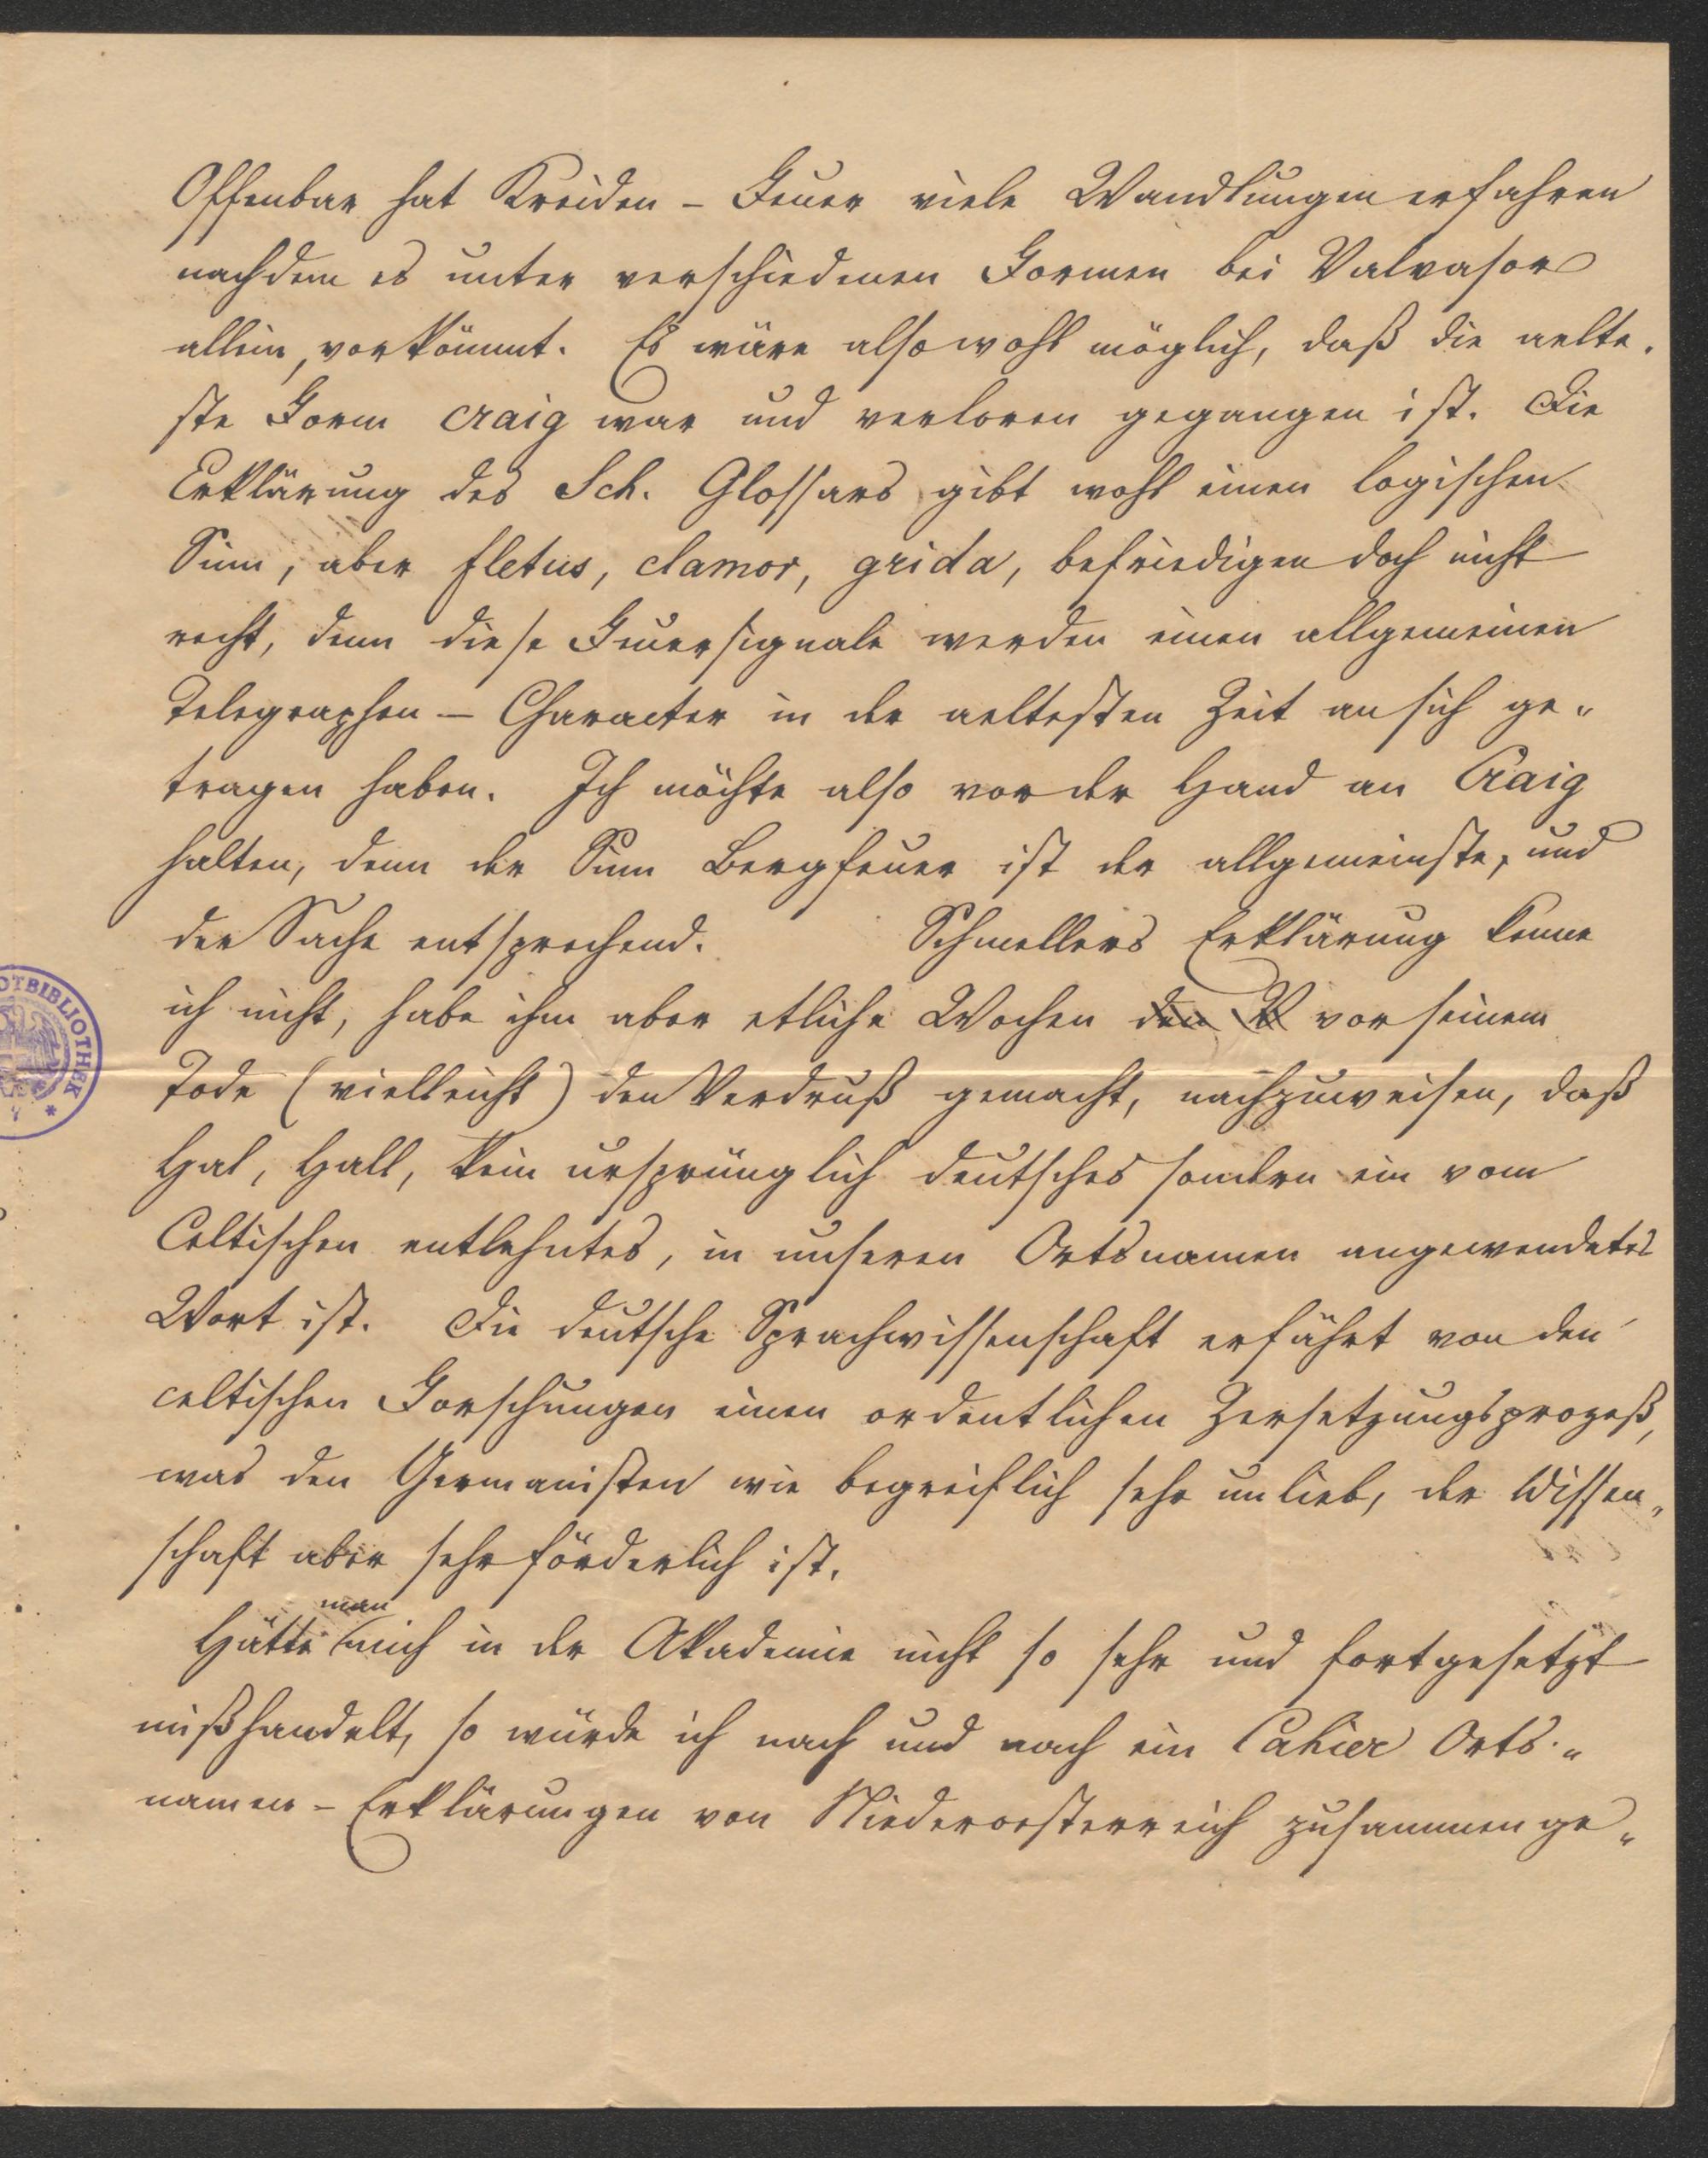 Offenbar hat Kreiden - Feuer viele Wandlungen erfahren
nachdem es unter verschiedenen Formen bei Valvasor
allein, vorkömmt. Es wäre also wohl möglich, daß die aelte„
ste Form craig war und verloren gegangen ist. Die
Erklärung des Sch. Glossars gibt wohl einen logischen
Sinn, aber fletus, clamor, grida, befriedigen doch nicht
recht, denn diese Feuersignale werden einen allgemeinen
Telegraphen - Character in der aeltesten Zeit an sich ge„
tragen haben. Ich möchte also vor der Hand an Craig
halten, denn der Sinn Bergfeuer ist der allgemeinste, und
der Sache entsprechend. Schmellers Erklärung kenne
ich nicht, habe ihm aber etliche Wochen den V vor seinem
Tode (vielleicht) den Verdruß gemacht, nachzuweisen, daß
Hal, Hall, kein ursprünglich deutsches sondern ein vom
Celtischen entlehntes, in unseren Ortsnamen angewendetes
Wort ist. Die deutsche Sprachwissenschaft erfährt von den
celtischen Forschungen einen ordentlichen Zersetzungsprozeß,
was den Germanisten wie begreiflich sehr unlieb, der Wissen„
schaft aber sehr förderlich ist.
man
Hätte mich in der Akademie nicht so sehr und fortgesetzt
mißhandelt, so würde ich nach und nach ein Cahier Orts„
namen - Erklärungen von Niederoesterreich zusammenge„
OTBIBLIOTHEK